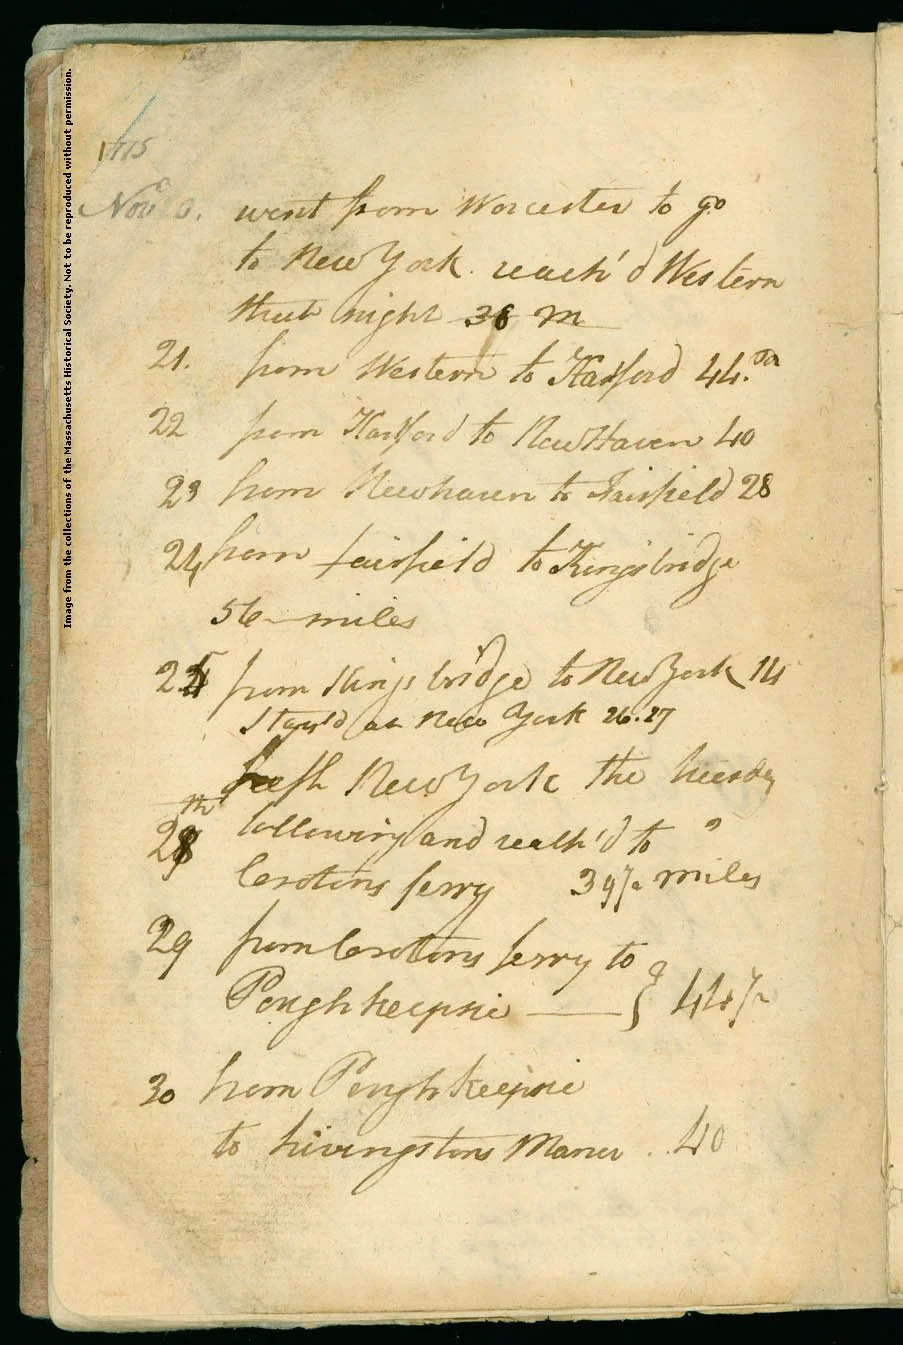 Image from the collections of the Massachusetts Historical Society. Not to be reproduced without permission.
1775
Novr 20. went from Worcester to go
to New York. reach'd Western
that night 36 m
21. from Western to Hartford 44. m
22 from Hartford to New Haven 40
23 from Newhaven to Fairfield 28
24 from fairfield to Kingsbridge
56 miles
25 from Kings bridge to New York 14
Stay'd at New York 26.27
left New York the tuesday
28th following and reach'd to
Crotons ferry 39½ miles
29 from Crotons ferry to
Poughkeepsie } 44½
30 from Poughkeepsie
to Livingstons Manor. 40